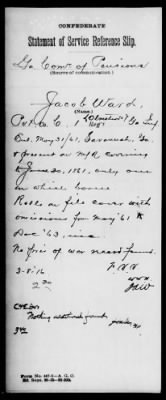 CONFEDERATE
Statement of Service Reference Slip.
Ga Comr. of Pensions
(Source of communication.)
Jacob Ward,
(Name.)
Pvt. Co. 1 (Olmstead's) Ga Inf
Reg't
Enl. May 31/61, Savannah, Ga.
& present on M/R covering
to June 30, 1861, only one
on which borne
Rolls on file cover with
omissions for May '61 to
Dec '63, inc.
No pris of war record found.
3-8-16
Nothing additional found
Form No. 447-2—A. G. O.